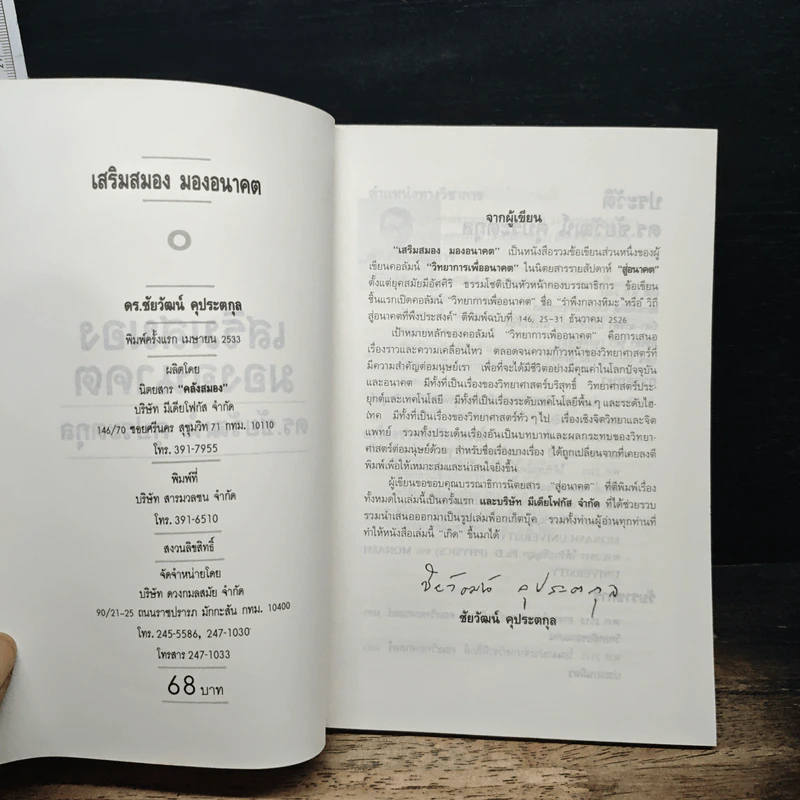 เสริมสมอง มองอนาคต
ดร.ชัยวัฒน์ คุประตกุล
พิมพ์ครั้งแรก เมษายน 2533
ผลิตโดย
นิตยสาร "คลังสมอง"
บริษัท มีเดียโฟกัส จำกัด
146/70 ซอยศรีนคร สุขุมวิท 71 กทม. 10110
โทร. 391-7955
พิมพ์ที่
บริษัท สารมวลชน จำกัด
โทร. 391-6510
สงวนลิขสิทธิ์
จัดจำหน่ายโดย
บริษัท ดวงกมลสมัย จำกัด
90/21-25 ถนนราชปรารภ มักกะสัน กทม. 10400
โทร. 245-5586, 247-1030
โทรสาร 247-1033
68 บาท
จากผู้เขียน
"เสริมสมอง มองอนาคต" เป็นหนังสือรวมข้อเขียนส่วนหนึ่งของผู้
เขียนคอลัมน์ "วิทยาการเพื่ออนาคต" ในนิตยสารรายสัปดาห์ "สู่อนาคต"
ตั้งแต่ยุคสมัยมีอัศศิริ ธรรมโชติเป็นหัวหน้ากองบรรณาธิการ ข้อเขียน
ชิ้นแรกเปิดคอลัมน์ "วิทยาการเพื่ออนาคต" ชื่อ "รำพึงกลางหิมะ" หรือ วิถี
สู่อนาคตที่พึงประสงค์" ตีพิมพ์ฉบับที่ 146, 25-31 ธันวาคม 2526
เป้าหมายหลักของคอลัมน์ "วิทยาการเพื่ออนาคต" คือการเสนอ
เรื่องราวและความเคลื่อนไหว ตลอดจนความก้าวหน้าของวิทยาศาสตร์ที่
มีความสำคัญต่อมนุษย์เรา เพื่อที่จะได้มีชีวิตอย่างมีคุณค่าในโลกปัจจุบัน
และอนาคต มีทั้งที่เป็นเรื่องของวิทยาศาสตร์บริสุทธิ์ วิทยาศาสตร์ประ-
ยุกต์และเทคโนโลยี มีทั้งที่เป็นเรื่องระดับเทคโนโลยีพื้นๆ และระดับไฮ-
เทค มีทั้งที่เป็นเรื่องของวิทยาศาสตร์ทั่วๆ ไป เรื่องเชิงจิตวิทยาและจิต
แพทย์ รวมทั้งประเด็นเรื่องอันเป็นบทบาทและผลกระทบของวิทยา-
ศาสตร์ต่อมนุษย์ด้วย สำหรับชื่อเรื่องบางเรื่อง ได้ถูกเปลี่ยนจากที่เคยลงตี
พิมพ์เพื่อให้เหมาะสมและน่าสนใจยิ่งขึ้น
ผู้เขียนขอขอบคุณบรรณาธิการนิตยสาร "สู่อนาคต" ที่ตีพิมพ์เรื่อง
ทั้งหมดในเล่มนี้เป็นครั้งแรก และบริษัท มีเดียโฟกัส จำกัด ที่ได้ช่วยรวบ
รวมนำเสนอออกมาเป็นรูปเล่มพ็อกเก็ตบุ๊ค รวมทั้งท่านผู้อ่านทุกท่านที่
ทำให้หนังสือเล่มนี้ "เกิด" ขึ้นมาได้
ชัยวัฒน์ คุประตกุล
ชัยวัฒน์ คุประตกุล